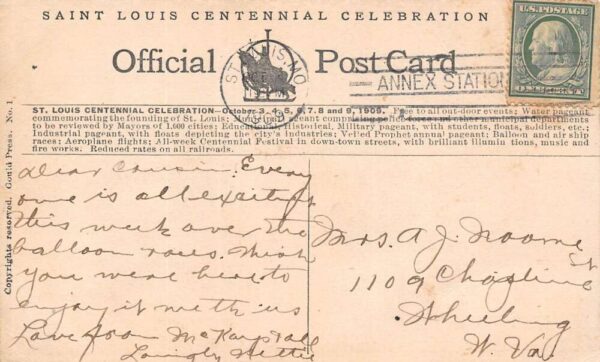 SAINT LOUIS CENTENNIAL CELEBRATION
Official Post Card
U.S. POSTAGE
ST. LOUIS, MO.
ANNEX STATION
ST. LOUIS CENTENNIAL CELEBRATION—October 3, 4, 5, 6, 7, 8 and 9, 1909. Free to all out-door events; Water pageant
commemorating the founding of St. Louis; Municipal pageant comprising police force and other municipal departments
to be reviewed by Mayors of 1,000 cities; Educational, Historical, Military pageant, with students, floats, soldiers, etc.;
Industrial pageant, with floats depicting the city's industries; Veiled Prophet annual pageant; Balloon and air ship
races; Aeroplane flights; All-week Centennial Festival in down-town streets, with brilliant illumin tions, music and
fire works. Reduced rates on all railroads.
Copyrights reserved. Gould Press. No. 1
Dear Cousin: Every
one is all exciting
this week over the
balloon races. Wish
you were here to
enjoy it with us
Love from McKay
Lovingly Hettie
Mrs. A. J. Noome
1109 Chapline St
Wheeling
W. Va